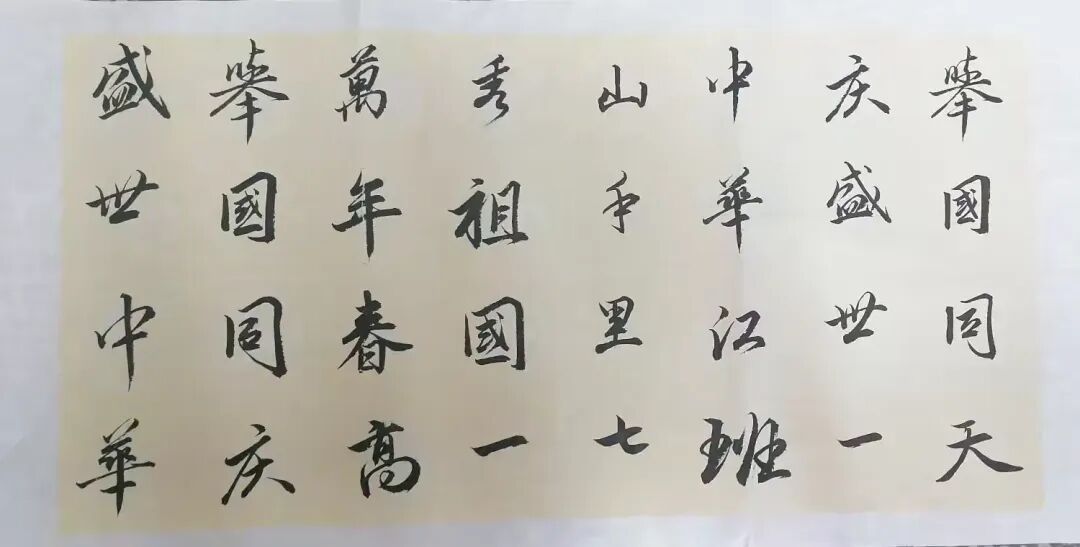 舉國同天
庆盛世一
中華江班
山千里七
秀祖國一
萬年春高
舉國同庆
盛世中華